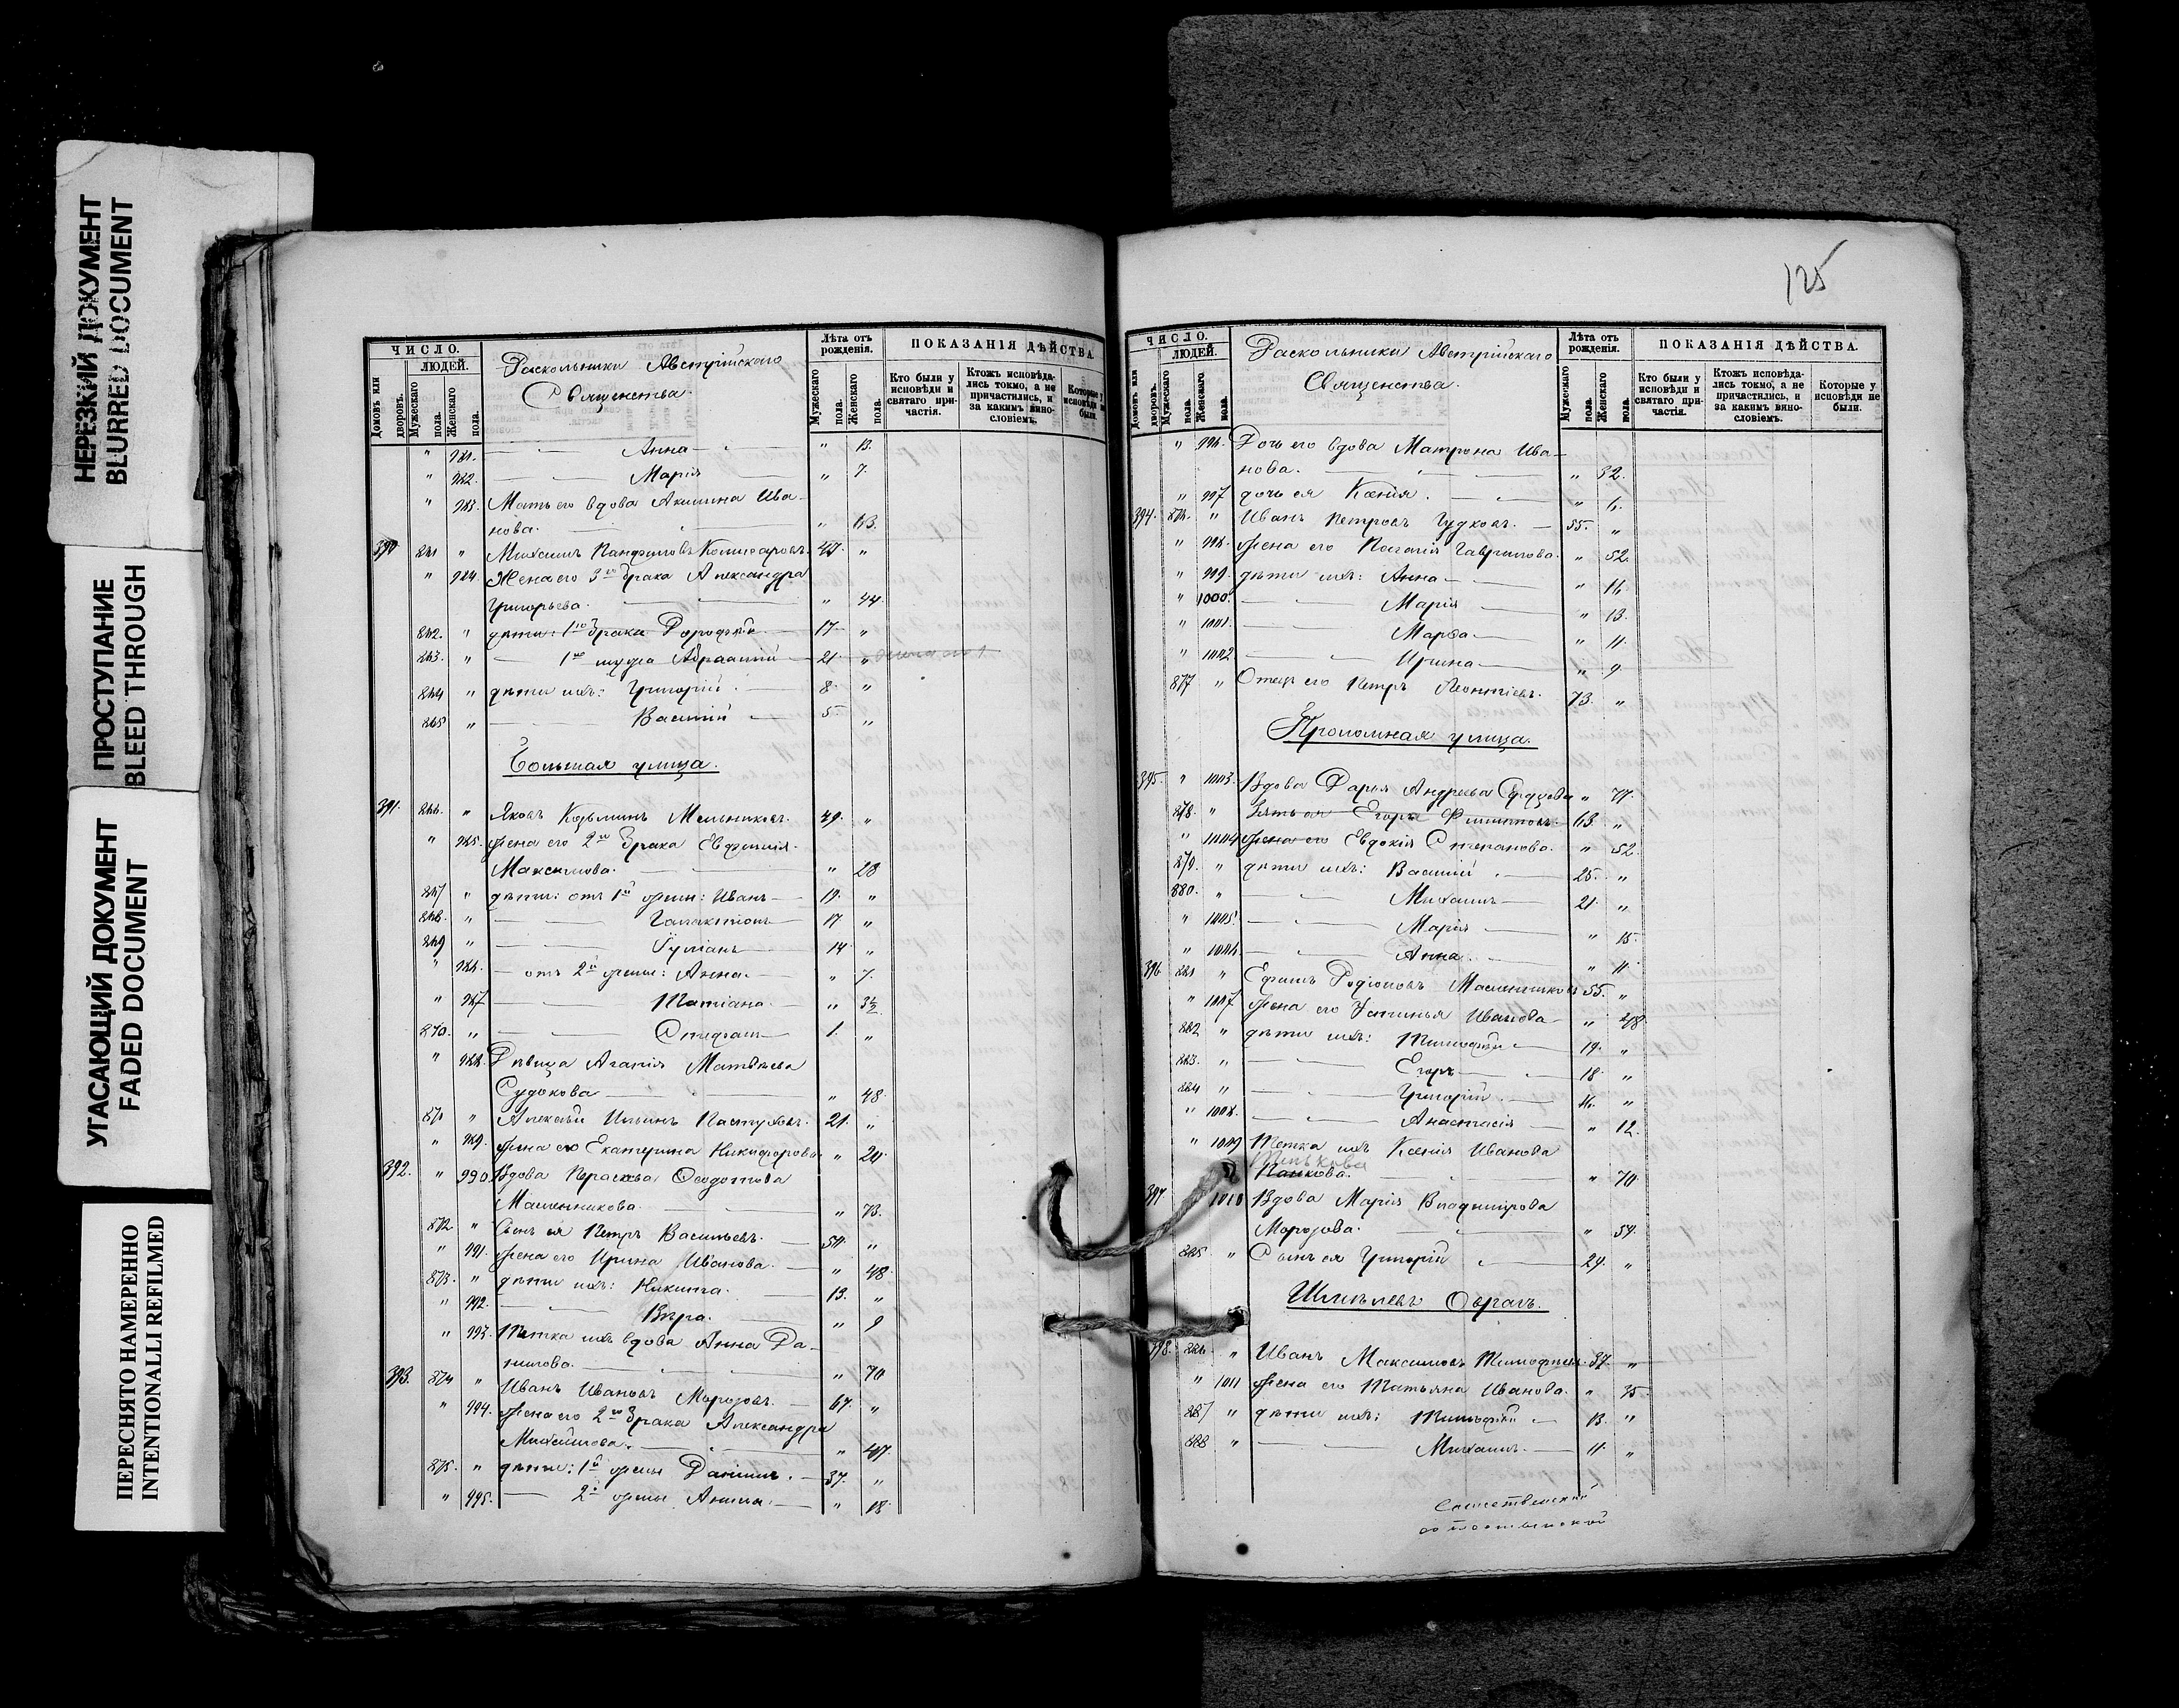 НЕРЕЗКИЙ ДОКУМЕНТ
BLURRED DOCUMENT
ПРОСТУПАНИЕ
BLEED THROUGH
УГАСАЮЩИЙ ДОКУМЕНТ
FADED DOCUMENT
ПЕРЕСНЯТО НАМЕРЕННО
INTENTIONALLI REFILMED
ЧИСЛО.
ЛЮДЕЙ.
Домовъ или дворовъ.
Мужескаго пола.
Женскаго пола.
Раскольники Австрійскаго
Священства.
Лѣта отъ рожденія.
Мужескаго пола.
Женскаго пола.
ПОКАЗАНІЯ ДѢЙСТВА.
Кто были у исповѣди и святаго причастія.
Ктожъ исповѣдались токмо, а не причастились, и за какимъ винословіемъ.
Которые у исповѣди не были.
" 981. Анна " 13.
" 982. Марія " 7.
" 983. Мать его вдова Акилина Ива-
нова. " 63.
390 861 " Михаилъ Панфиловъ 47. "
" 984. Жена его 3го брака Александра
Григорьева. " 44.
862. " дѣти: 17 "
863. " 1го мужа Абрамій 21. "
864 " дѣти ихъ: Григорій. 8. "
865 " Василій 5 "
Большая улица.
391. 866. " Яковъ Козьминъ Мельниковъ. 49. "
" 985. Жена его 2го брака Евфимія
Максимова. " 28
867 " дѣти: отъ 1й жены: Иванъ 19. "
868. " Галактіонъ 17 "
869 " Іуліанъ 14 "
" 986. отъ 2й жены: Анна. " 7.
" 987 Татіана. " 3½
870. " Стефанъ 1. "
" 988. Дѣвица Агапія Матвѣева
Судокова " 48.
871 " Алексѣй Ильинъ Пастуховъ. 21. "
" 989. Жена его Екатерина Никифорова " 20.
392. " 990. Вдова Параскева Ѳеодотова
Масленникова. " 73.
872 " Сынъ ея Петръ Васильевъ. 50. "
" 991. Жена его Ирина Иванова. " 48.
873. " дѣти ихъ: Никита. 13. "
" 992. Вѣра. " 9
" 993. Тетка ихъ вдова Анна Да-
нилова. " 70
393. 874 " Иванъ Ивановъ Морозовъ. 67. "
" 994. Жена его 2го брака Александра
Михайлова. " 47.
875. " дѣти: 1й жены Даніилъ. 37. "
" 995. 2й жены Анна. " 18.
125
ЧИСЛО.
ЛЮДЕЙ.
Домовъ или дворовъ.
Мужескаго пола.
Женскаго пола.
Раскольники Австрійскаго
Священства.
Лѣта отъ рожденія.
Мужескаго пола.
Женскаго пола.
ПОКАЗАНІЯ ДѢЙСТВА.
Кто были у исповѣди и святаго причастія.
Ктожъ исповѣдались токмо, а не причастились, и за какимъ винословіемъ.
Которые у исповѣди не были.
" 996. Дочь его вдова Матрона Ива-
нова. " 32.
" 997 дочь ея Ксенія. " 6.
394. 876. " Иванъ Петровъ Гудковъ. 55. "
" 998. Жена его Пелагія Гаврилова. " 52.
" 999. дѣти ихъ: Анна " 16.
" 1000. Марія " 13.
" 1001. Марѳа " 11.
" 1002. Ирина " 9
877 " Отецъ его Петръ Леонтіевъ. 73. "
Проломная улица.
395. " 1003. Вдова Дарія Андреева " 77.
878. " Зять ея Егоръ Филипповъ 63. "
" 1004 Жена его Евдокія Степанова. " 52.
879. " дѣти ихъ: Василій 25. "
880. " Михаилъ 21. "
" 1005. Марія " 15.
" 1006. Анна. " 11.
396 881 " Ефимъ Родіоновъ Масленниковъ 55. "
" 1007. Жена его Устинья Иванова " 48.
882 " дѣти ихъ: Тимофей 19. "
883. " Егоръ 18. "
884 " Григорій 16. "
" 1008. Анастасія " 12.
" 1009 Тетка ихъ Ксенія Иванова
Пенькова
Панкова. " 70.
397. 1010 Вдова Марія Владимірова
Морозова. " 54.
885. " Сынъ ея Григорій 29. "
Шмелевъ Оврагъ.
398. 886. " Иванъ Максимовъ 37. "
" 1011 Жена его Татьяна Иванова. " 35
887 " дѣти ихъ: Тимофей 13. "
888 " Михаилъ. 11. "